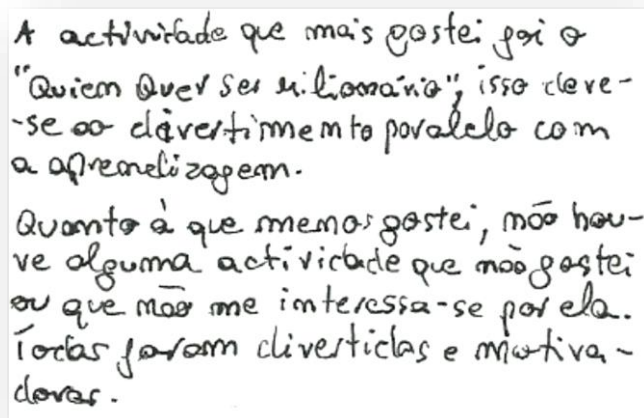 A actividade que mais gostei foi o
"Quiem Quer ser milionário", isso deve-
-se ao divertimento paralelo com
a aprendizagem.
Quanto à que menos gostei, não hou-
ve alguma actividade que não gostei
ou que não me interessa-se por ela.
Todas foram divertidas e motiva-
doras.